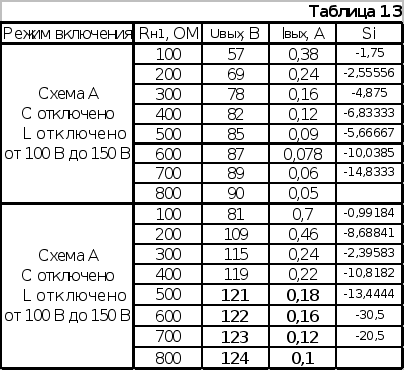 Таблица 1.3
Режим включения Rн1, ОМ Uвых, В Iвых, А Si
100 57 0,38 -1,75
200 69 0,24 -2,55556
300 78 0,16 -4,875
Схема А
400 82 0,12 -6,83333
С отключено
500 85 0,09 -5,66667
L отключено
600 87 0,078 -10,0385
от 100 В до 150 В
700 89 0,06 -14,8333
800 90 0,05
100 81 0,7 -0,99184
200 109 0,46 -8,68841
300 115 0,24 -2,39583
Схема А
400 119 0,22 -10,8182
С отключено
500 121 0,18 -13,4444
L отключено
600 122 0,16 -30,5
от 100 В до 150 В
700 123 0,12 -20,5
800 124 0,1